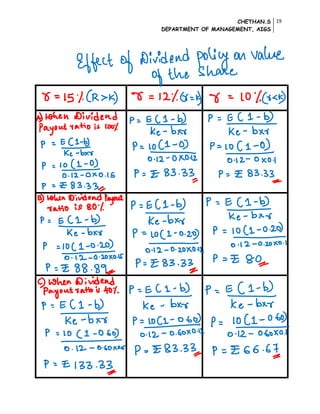 CHETHAN.S 19
DEPARTMENT OF MANAGEMENT, AIGS
Effect of Dividend policy on value
of the Share
r = 15% (R>K)
r = 12% (r=k)
r = 10% (r<k)
A) When Dividend
Payout ratio is 100%
P = E(1-b)
Ke-bxr
P = 10(1-0)
0.12-0x0.15
P = ₹ 83.33
P = E(1-b)
Ke-bxr
P = 10(1-0)
0.12-0x0.12
P = ₹ 83.33
P = E(1-b)
Ke-bxr
P = 10(1-0)
0.12-0x0.1
P = ₹ 83.33
B) When Dividend Payout
ratio is 80%
P = E(1-b)
Ke-bxr
P = 10(1-0.20)
0.12-0.20x0.15
P = ₹ 88.89
P = E(1-b)
Ke-bxr
P = 10(1-0.20)
0.12-0.20x0.12
P = ₹ 83.33
P = E(1-b)
Ke-bxr
P = 10(1-0.20)
0.12-0.20x0.1
P = ₹ 80
C) When Dividend
Payout ratio is 40%
P = E(1-b)
Ke-bxr
P = 10(1-0.60)
0.12-0.60x0.15
P = ₹ 133.33
P = E(1-b)
Ke-bxr
P = 10(1-0.60)
0.12-0.60x0.12
P = ₹ 83.33
P = E(1-b)
Ke-bxr
P = 10(1-0.60)
0.12-0.60x0.1
P = ₹ 66.67